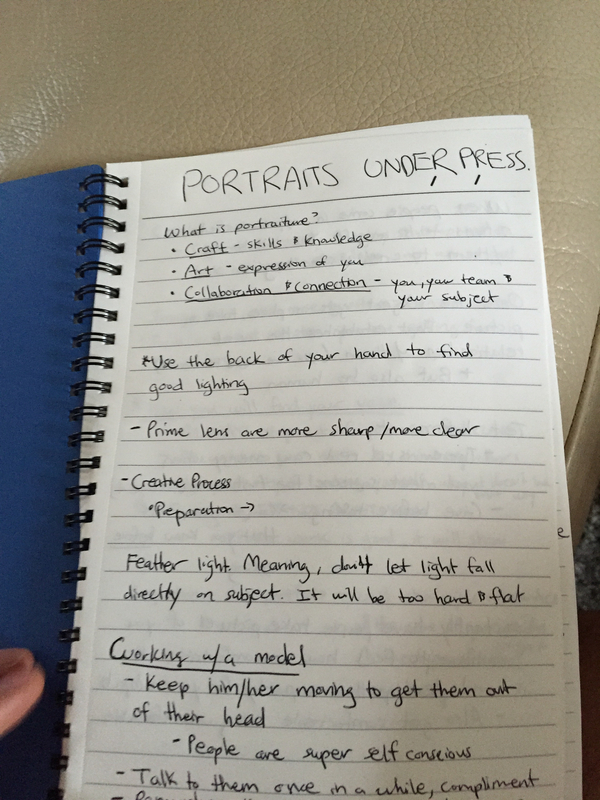 PORTRAITS UNDER PRESS.
What is portraiture?
• Craft - skills & knowledge
• Art - expression of you
• Collaboration & Connection - you, your team &
your subject
*Use the back of your hand to find
good lighting
- Prime lens are more sharp/more clear
- Creative Process
• Preparation →
Feather light. Meaning, don't let light fall
directly on subject. It will be too hard & flat
Working w/a model
- Keep him/her moving to get them out
of their head
- People are super self conscious
- Talk to them once in a while, compliment